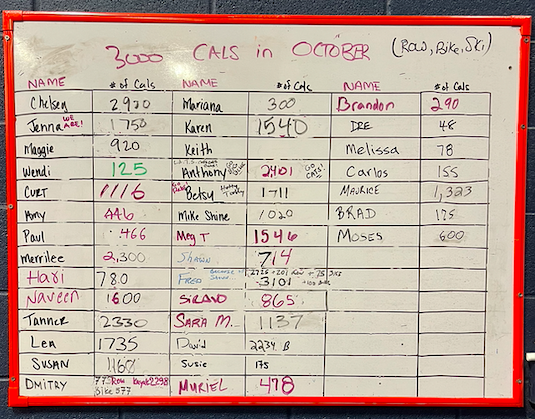 3000 CALS in OCTOBER (Row, Bike, Ski)
NAME # of Cals NAME # of Cals NAME # of Cals
Chelsea 2920 Mariana 300 Brandon 290
Jenna WE ARE! 1750 Karen 1540 DRE 48
Maggie 920 Keith Melissa 78
Wendi 125 Anthony 2401 GO CATS! Carlos 155
CURT 1116 Betsy 1711 MAURICE 1,323
Amy 446 Mike Shine 1020 BRAD 175
Paul 466 Meg T 1546 MOSES 600
merrilee 2,300 Shawn 714
Hari 780 FRED 3101
Naveen 1600 865
Tanner 2330 SARA M. 1137
Lea 1735 David 2234 B
SUSAN 1160 Susie 175
DMITRY Row 2298 Bike 577 MURIEL 478